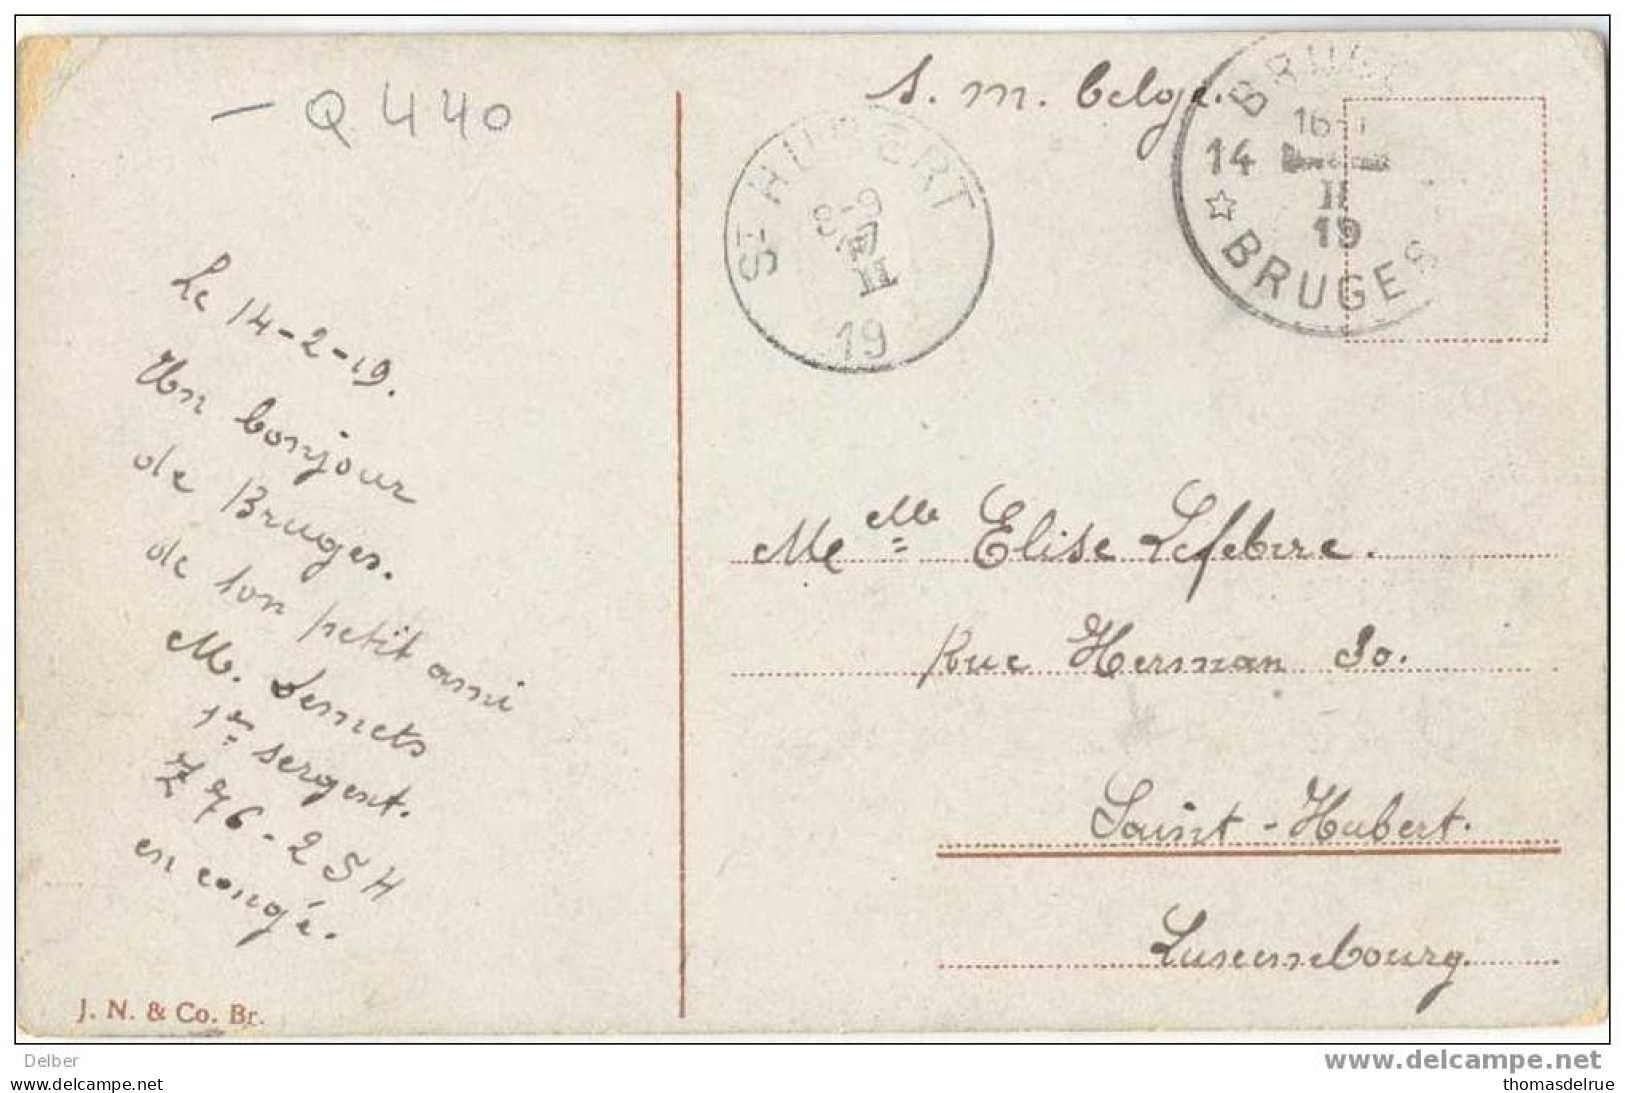 - Q 440
S. M. belge.
BRUGGE
16-1
14
II
19
BRUGES
ST HUBERT
8-9
17
II
19
Le 14-2-19.
Un bonjour
de Bruges.
de ton petit ami
M. Semets
1er sergent.
Z 76 - 2 S H
en congé.
Melle Elise Lefebvre.
Rue Herman 30.
Saint-Hubert.
Luxembourg.
J. N. & Co. Br.
Delber
www.delcampe.net
All rights reserved
thomasdelrue